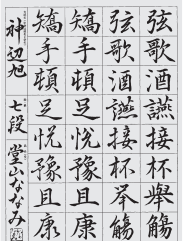 弦歌酒讌接杯舉觴
弦歌酒讌接杯举觴
矯手頓足悦豫且康
矯手頓足悦豫且康
神辺旭 七段 堂山ななみ